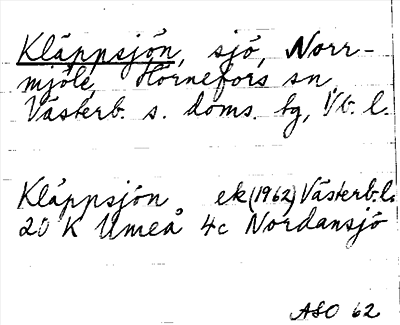 Kläppsjön, sjö, Norr-
mjöle, Hörnefors sn,
Västerb. s. doms. tg, Vb. l.
Kläppsjön ek (1962) Västerb.l.
20 K Umeå 4c Nordansjö
ASO 62